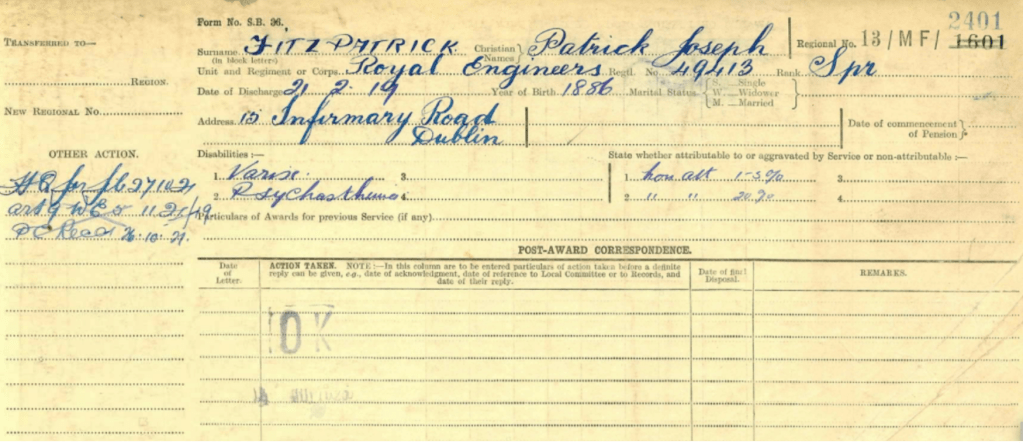 2401
Form No. S.B. 36.
TRANSFERRED TO—
Surname FITZPATRICK Christian Names Patrick Joseph Regional No. 13/MF/ 1601
(in block letters)
Unit and Regiment or Corps Royal Engineers Regtl. No. 49413 Rank Spr
REGION.
Date of Discharge 21. 2. 19 Year of Birth 1886 Marital Status S.—Single
W.—Widower
M.—Married
NEW REGIONAL No.
Address 15 Infirmary Road
Dublin
Date of commencement of Pension
OTHER ACTION.
Disabilities :— State whether attributable to or aggravated by Service or non-attributable :—
1. Varix. 3. 1. non att 1-5% 3.
2. Psychasthenia 4. 2. " " 20% 4.
27.10.21
26.10.21.
Particulars of Awards for previous Service (if any)
POST-AWARD CORRESPONDENCE.
Date of Letter. ACTION TAKEN. NOTE :—In this column are to be entered particulars of action taken before a definite Date of final Disposal. REMARKS.
reply can be given, e.g., date of acknowledgment, date of reference to Local Committee or to Records, and
date of their reply.
OK